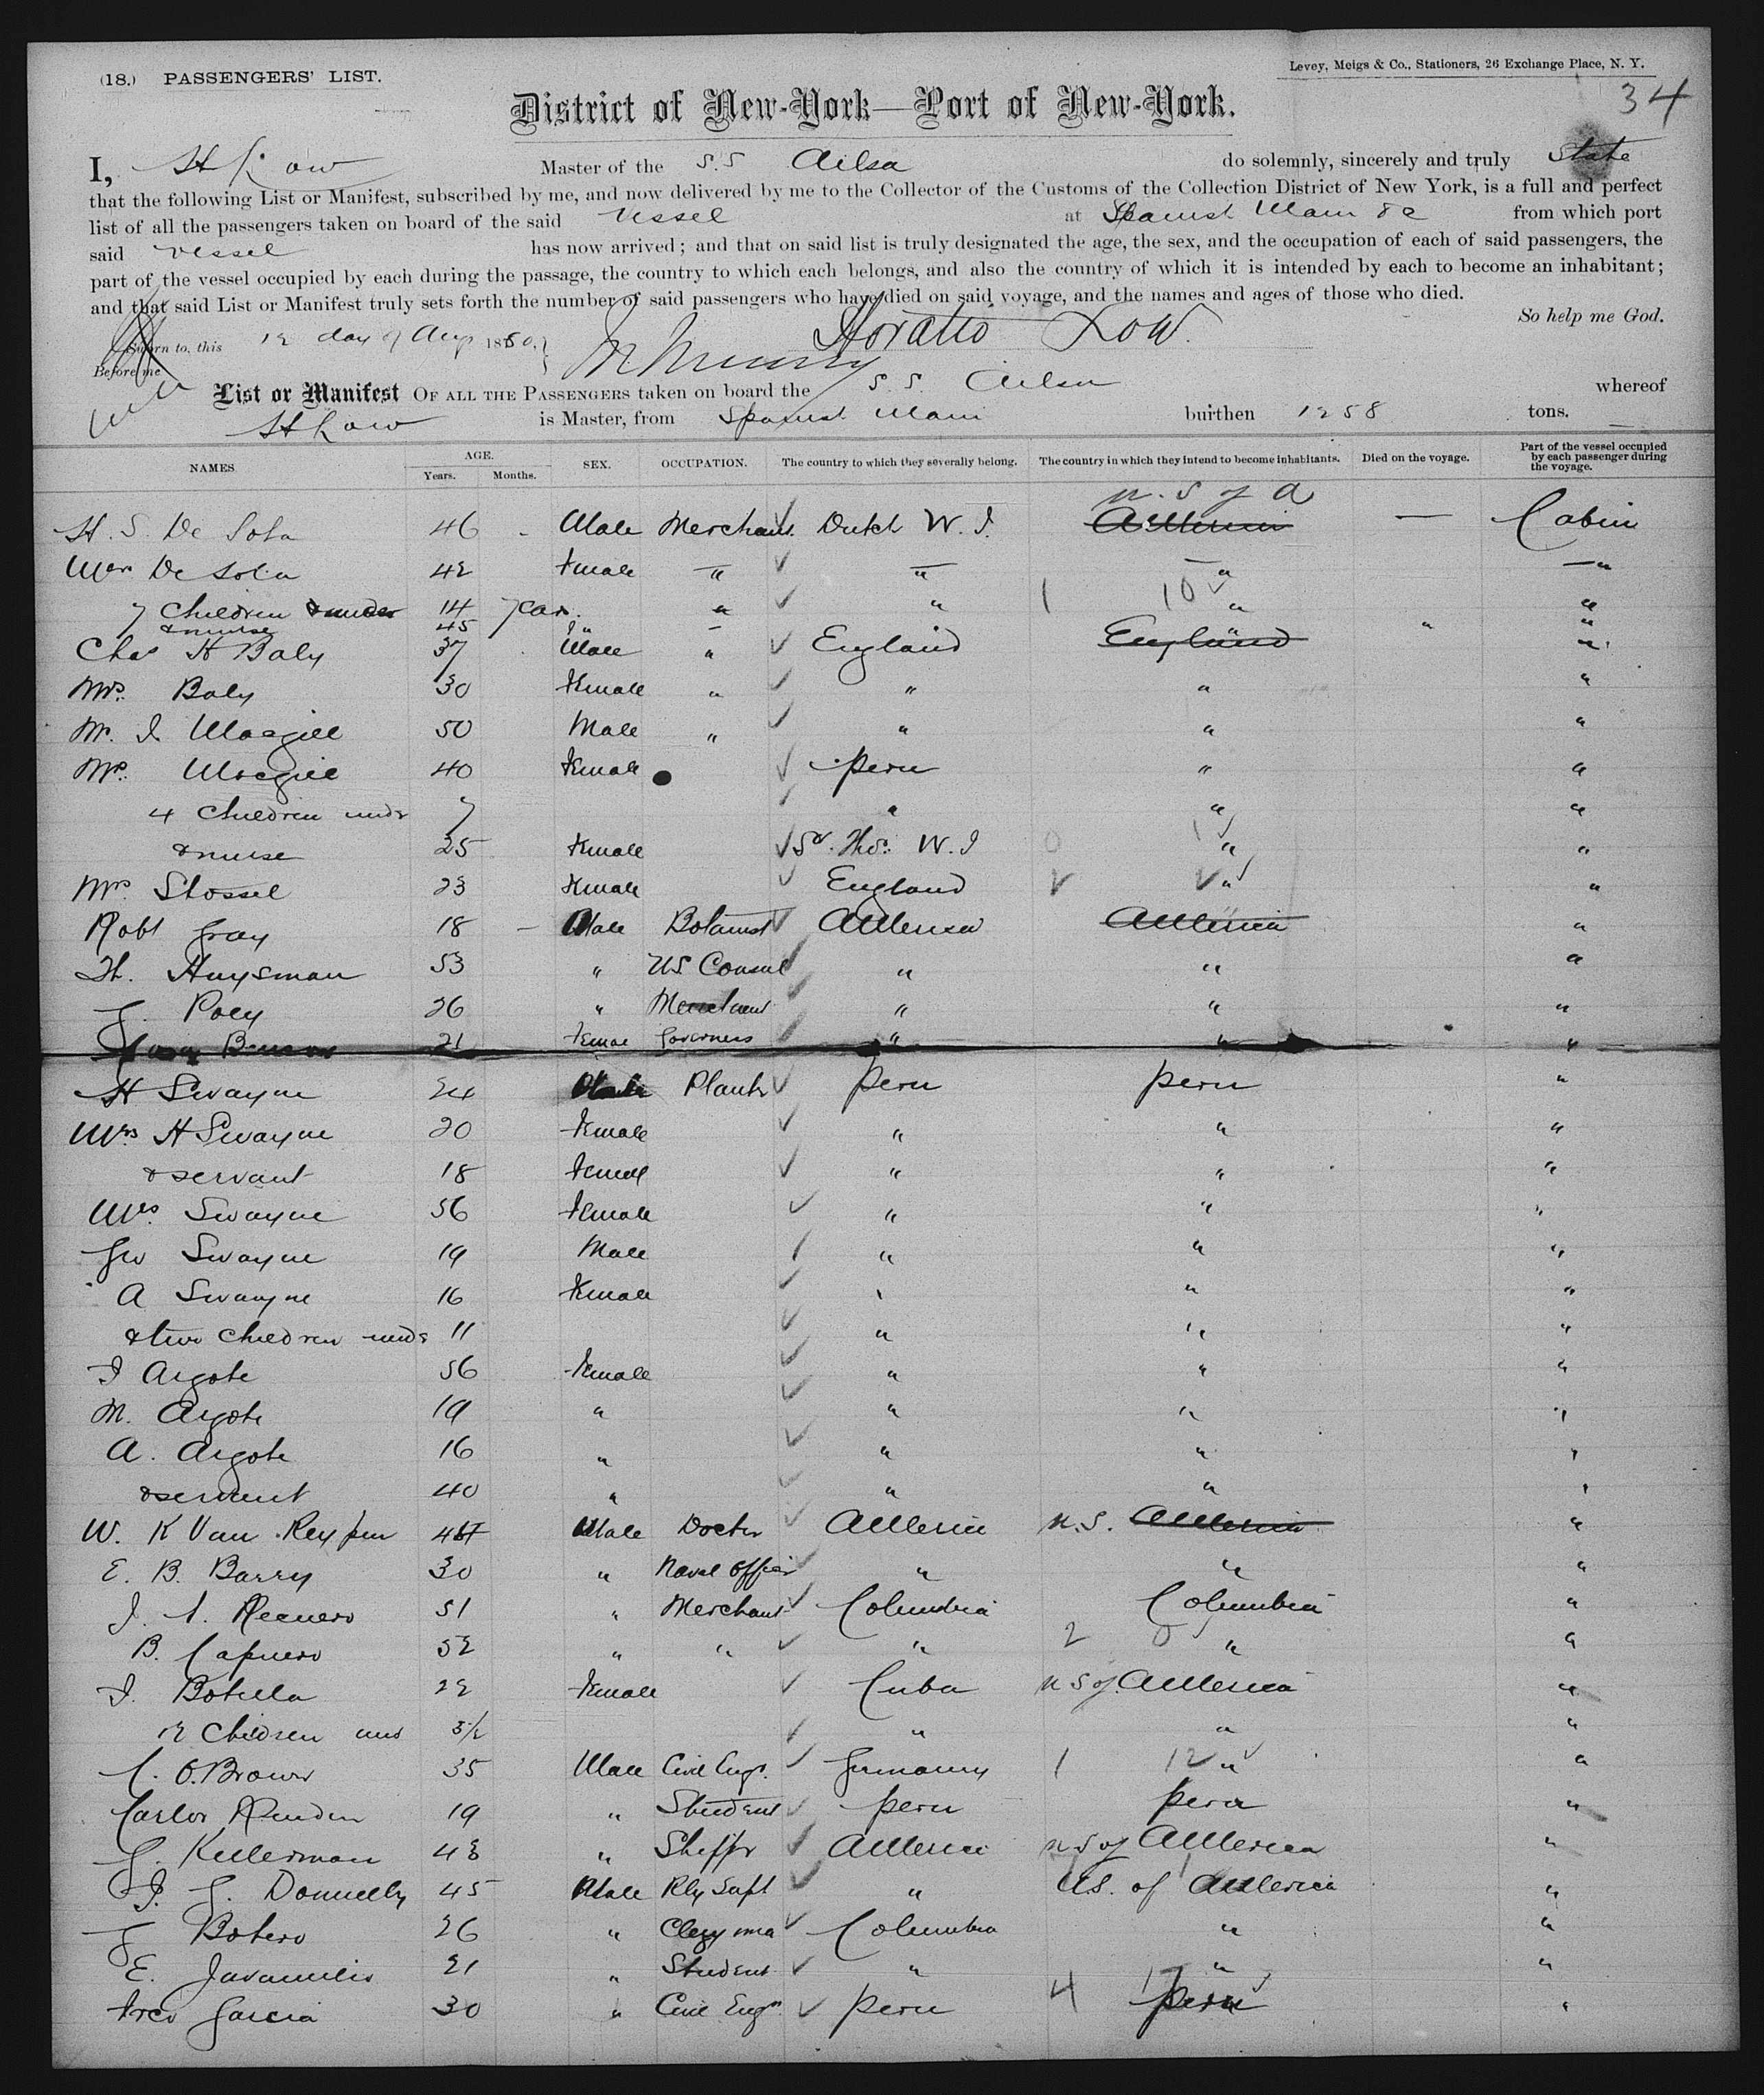 (18.) PASSENGERS' LIST.
Levey, Meigs & Co., Stationers, 26 Exchange Place, N. Y.
34
District of New-York—Port of New-York.
I, H Low Master of the S.S Ailsa do solemnly, sincerely and truly State
that the following List or Manifest, subscribed by me, and now delivered by me to the Collector of the Customs of the Collection District of New York, is a full and perfect
list of all the passengers taken on board of the said Vessel at Spanish Main &c from which port
said vessel has now arrived; and that on said list is truly designated the age, the sex, and the occupation of each of said passengers, the
part of the vessel occupied by each during the passage, the country to which each belongs, and also the country of which it is intended by each to become an inhabitant;
and that said List or Manifest truly sets forth the number of said passengers who have died on said voyage, and the names and ages of those who died.
So help me God.
Sworn to, this 12 day of Aug 1880. Horatio Low.
Before me
List or Manifest OF ALL THE PASSENGERS taken on board the S.S. Ailsa whereof
H Low is Master, from Spanish Main burthen 1258 tons.
NAMES AGE. Years. Months. SEX. OCCUPATION. The country to which they severally belong. The country in which they intend to become inhabitants. Died on the voyage. Part of the vessel occupied by each passenger during the voyage.
U.S of A
H. S. De Sola 46 - Male Merchant Dutch W. I. America — Cabin
Mrs De Sola 42 Female " " " "
7 Children & under 14 year " " 1 10 " "
& nurse 45 " - " "
Chas H Baly 37 Male " England England "
Mrs. Baly 30 Female " " " "
Mr. I. Macgill 50 Male " " " "
Mrs. Macgill 40 Female Peru " "
4 Children undr 7 " " "
& nurse 25 Female St. Thos. W. I 0 1 " "
Mrs Stossel 23 Female England " "
Robt Gray 18 - Male Botanist America America "
H. Huysman 53 " US Consul " " "
J. Poey 26 " Merchant " " "
Benson 21 Female Governess " " "
H Swayne 24 Male Plantr Peru Peru "
Mrs H Swayne 20 Female " " "
& servant 18 Female " " "
Mrs. Swayne 56 Female " " "
Geo Swayne 19 Male " " "
A Swayne 16 Female " " "
& two children undr 11 " " "
I Argote 56 Female " " "
M. Argote 19 " " " "
A. Argote 16 " " " "
& servant 40 " " " "
W. K Van Reypen Male Doctor America U.S. America "
E. B. Barry 30 " Naval Officer " " "
J. Recuero 51 " Merchant Columbia Columbia "
B. Capuero 52 " " " 2 0 " "
I. Botella 22 Female Cuba U S of America "
2 Children und 3½ " " "
C. O. Brown 35 Male Civil Engr. Germany 1 12 " "
Carlos Rendon 19 " Student Peru Peru "
J. Kellerman 43 " Shippr America U S of America "
J. J. Donnelly 45 Male Rly Supt " U.S. of America "
J Botero 26 " Clergyma Columbia " "
E. Jaramilis 21 " Student " " "
Frco Garcia 30 " Civil Engr Peru 4 17 Peru "